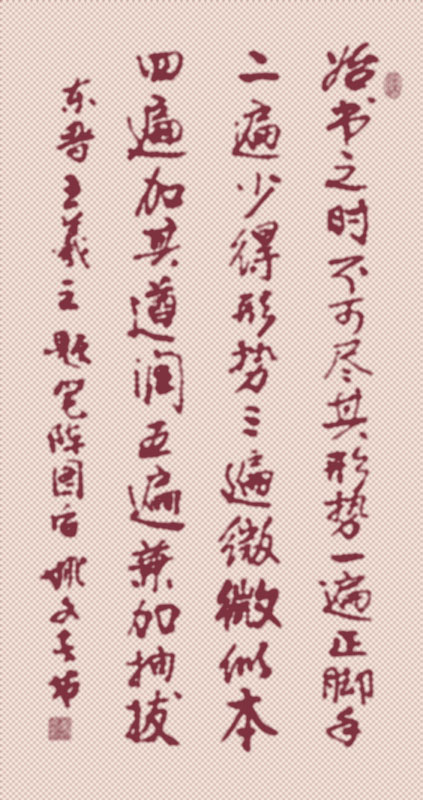 始书之时不可尽其形势一遍正脚手
二遍少得形势三遍微微似本
四遍加其遒润五遍兼加抽拔
东晋王羲之题笔阵图后姚文长书